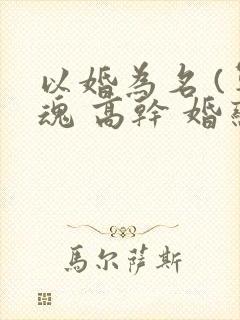 以婚為名(
魂 高幹 婚
馬尔萨斯